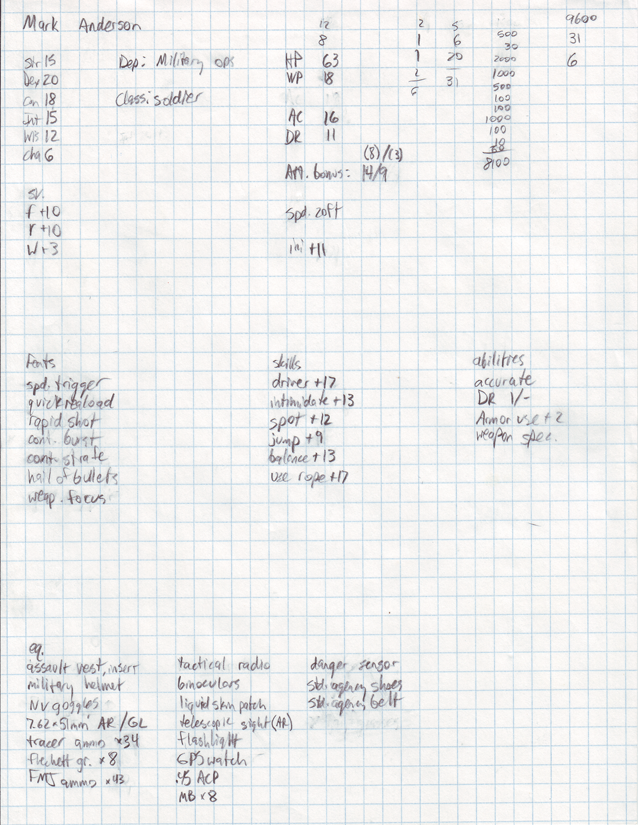 Mark Anderson
Str 15
Dex 20
Con 18
Int 15
Wis 12
cha 6
Dep: Military ops
Class: soldier
12
8
HP 63
WP 18
AC 16
DR 11
(8)/(3)
Att. bonus: 14/9
spd. 20ft
ini +11
2
1
1
2
6
5
6
20
31
500
30
2000
1000
500
100
100
1000
100
10
8100
9600
31
6
sv.
f +10
r +10
W +3
feats
spd. trigger
quick reload
rapid shot
cont. burst
cont. strafe
hail of bullets
weap. focus
skills
driver +17
intimidate +13
spot +12
jump +9
balance +13
use rope +17
abilities
accurate
DR 1/-
Armor use +2
weapon spec.
eq.
assault vest, insert
military helmet
NV goggles
7.62x51mm AR/GL
tracer ammo x34
flechett gr. x8
FMJ ammo x43
tactical radio
binoculars
liquid skin patch
telescopic sight (AR)
flashlight
GPS watch
.45 ACP
MB x8
danger sensor
std. agency shoes
std. agency belt